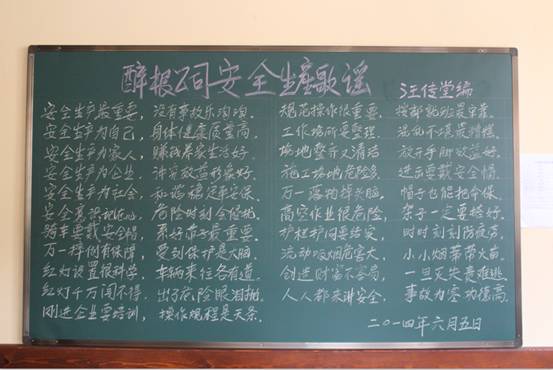 醉根公司安全生产歌谣 汪传堂编
安全生产最重要，没有事故乐淘淘。
安全生产为自己，身体健康质量高。
安全生产为家人，赚钱养家生活好。
安全生产为企业，效益形象好。
安全生产为社会，和谐稳定安保。
安全意识记在心，危险时刻会
骑车要戴安全帽，系好带子最重要。
万一摔倒有保障，受到保护是大脑。
红灯设置很科学，车辆来往各有道。
红灯千万闯不得，出了危险眼泪抛。
刚进企业要培训，操作规程是天条。
规范操作很重要，按部就班最牢靠。
工作场所要整理，混乱不堪最糟糕。
场地整齐又清洁，放开手脚效益好。
施工场地危险多，进去要戴安全帽。
万一落物掉头脑，帽子也能把命保。
高空作业很危险，架子一定要搭好。
护栏护网要结实，时时刻刻防疲劳。
流动吸烟危害大，小小烟蒂带火苗。
创造财富不容易，一旦失责难逃。
人人都来讲安全，事故为零为德高。
二〇一四年六月五日